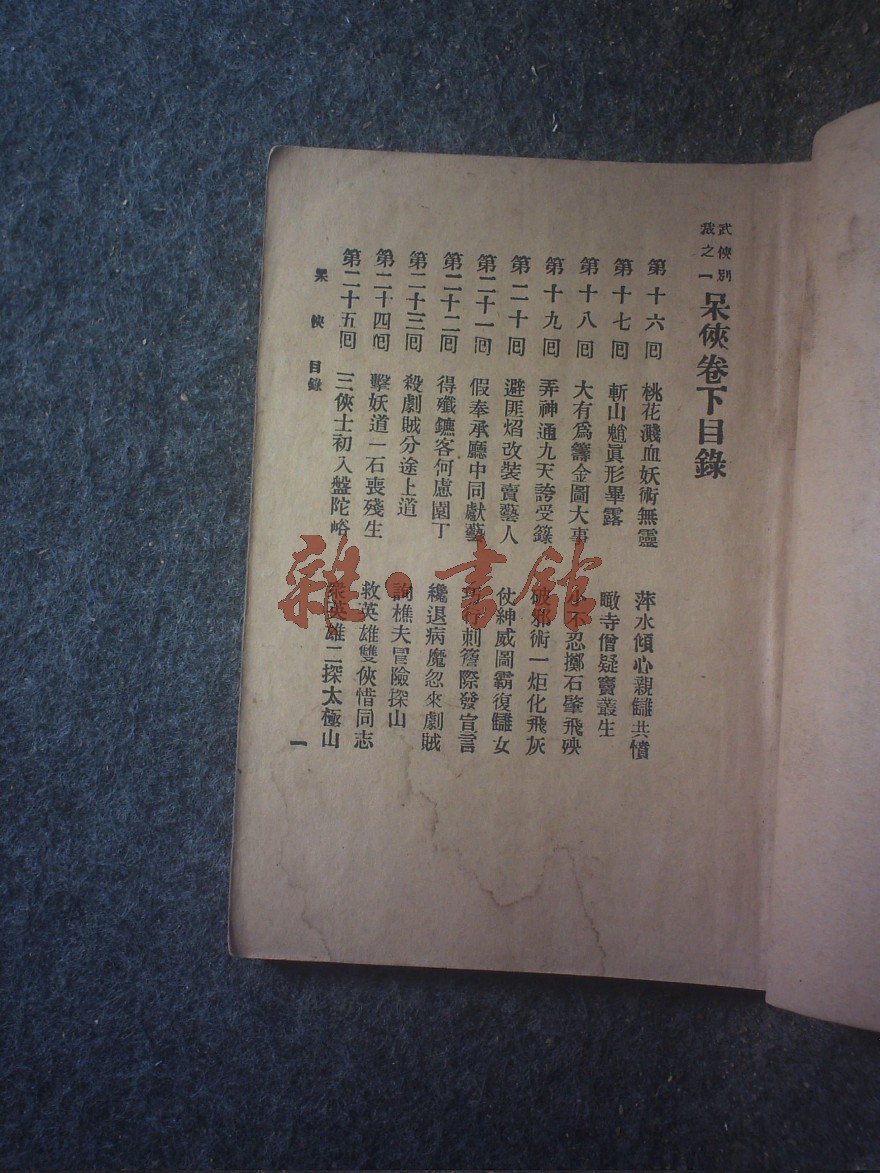 武俠別裁之一
呆俠卷下目錄
第十六回 桃花濺血妖術無靈 萍水傾心親讎共憤
第十七回 斬山魈眞形畢露 瞰寺僧疑竇叢生
第十八回 大有爲籌金圖大事 小不忍擲石肇飛殃
第十九回 弄神通九天誇受籙 破邪術一炬化飛灰
第二十回 避匪焰改裝賣藝人 仗紳威圖霸復讎女
第二十一回 假奉承廳中同獻藝 行刺簷際發宣言
第二十二回 得殲鑣客何慮園丁 纔退病魔忽來劇賊
第二十三回 殺劇賊分途上道 詢樵夫冒險探山
第二十四回 擊妖道一石喪殘生 救英雄雙俠惜同志
第二十五回 三俠士初入盤陀峪 衆英雄二探太極山
呆俠 目錄
一
雜·書館